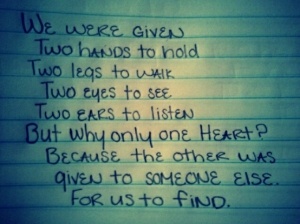 We were given
Two hands to hold
Two legs to walk
Two eyes to see
Two ears to listen
But why only one Heart?
Because the other was
given to someone else.
For us to find.